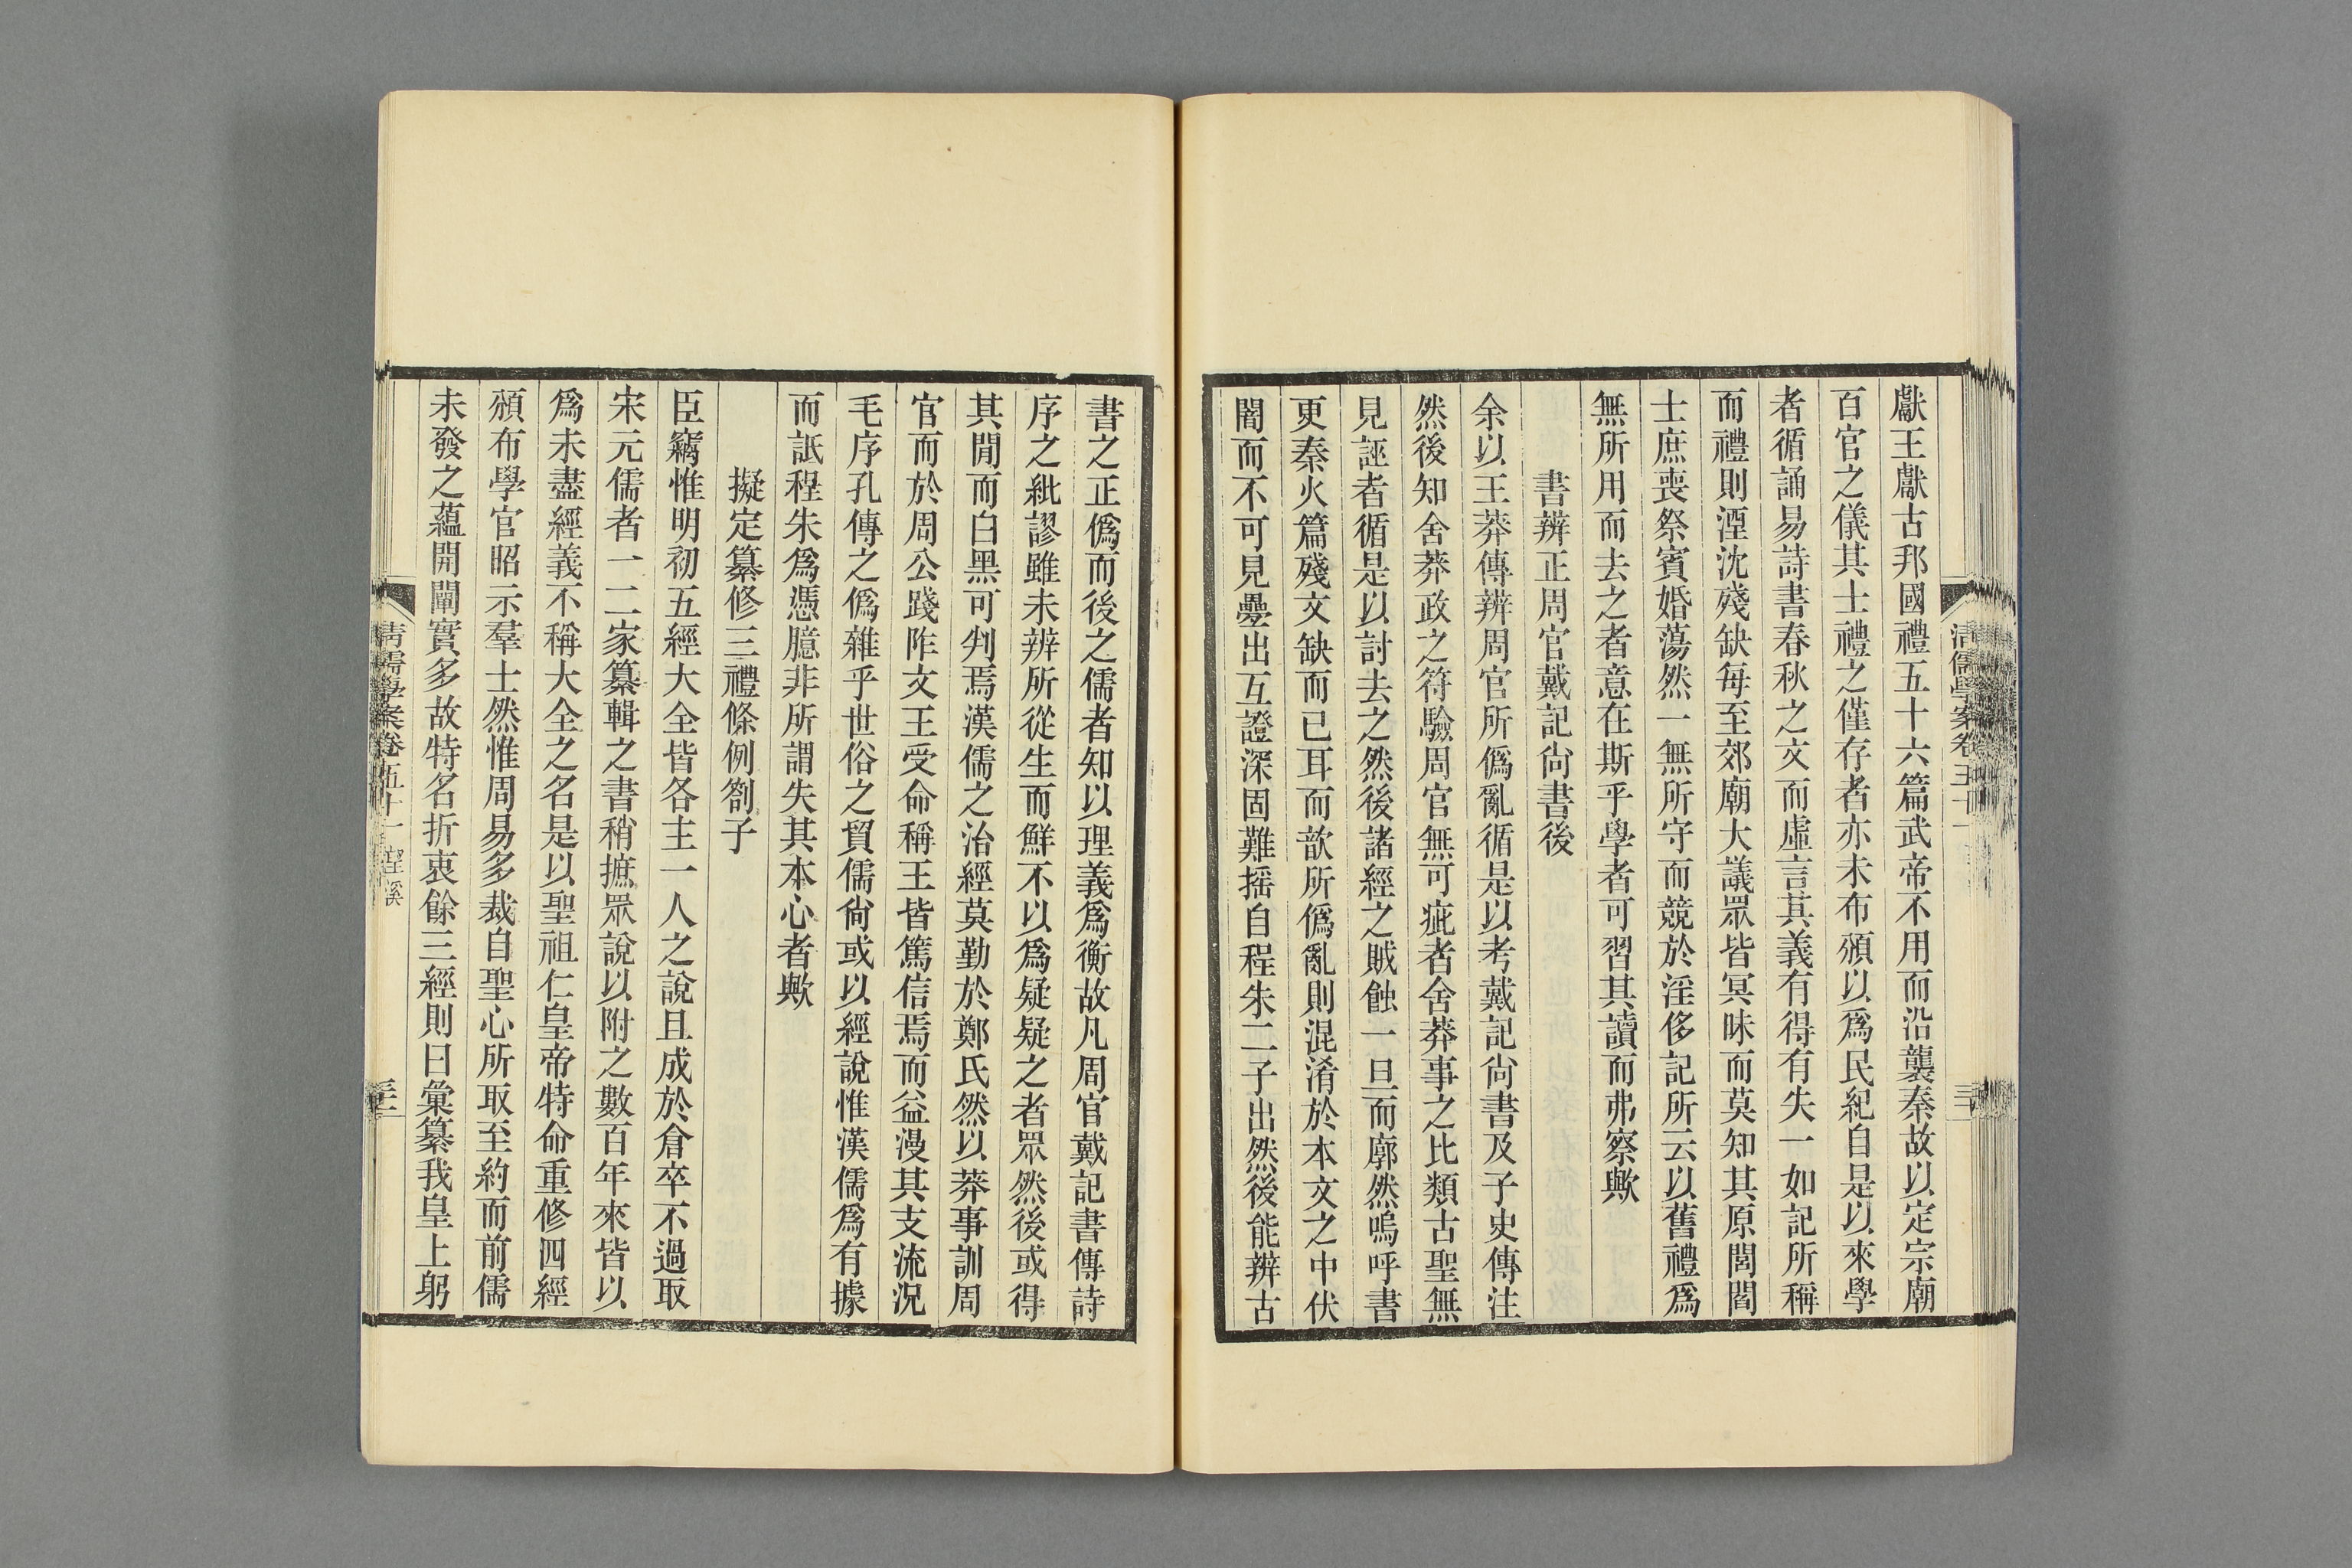 獻王獻古邦國禮五十六篇武帝不用而沿襲秦故以定宗廟
百官之儀其士禮之僅存者亦未布頒以爲民紀自是以來學
者循誦易詩書春秋之文而虛言其義有得有失一如記所稱
而禮則湮沈殘缺每至郊廟大議眾皆冥昧而莫知其原閭閻
士庶喪祭賓婚蕩然一無所守而競於淫侈記所云以舊禮爲
無所用而去之者意在斯乎學者可習其讀而弗察歟
書辨正周官戴記尙書後
余以王莽傳辨周官所僞亂循是以考戴記尙書及子史傳注
然後知舍莽政之符驗周官無可疵者舍莽事之比類古聖無
見誣者循是以討去之然後諸經之賊蝕一旦而廓然嗚呼書
更秦火篇殘文缺而已耳而歆所僞亂則混淆於本文之中伏
闇而不可見疊出互證深固難搖自程朱二子出然後能辨古
書之正僞而後之儒者知以理義爲衡故凡周官戴記書傳詩
序之紕謬雖未辨所從生而鮮不以爲疑疑之者眾然後或得
其閒而白黑可判焉漢儒之治經莫勤於鄭氏然以莽事訓周
官而於周公踐阼文王受命稱王皆篤信焉而益漫其支流況
毛序孔傳之僞雜乎世俗之貿儒尙或以經說惟漢儒爲有據
而詆程朱爲憑臆非所謂失其本心者歟
擬定纂修三禮條例劄子
臣竊惟明初五經大全皆各主一人之說且成於倉卒不過取
宋元儒者一二家纂輯之書稍摭眾說以附之數百年來皆以
爲未盡經義不稱大全之名是以聖祖仁皇帝特命重修四經
頒布學官昭示羣士然惟周易多裁自聖心所取至約而前儒
未發之蘊開闡實多故特名折衷餘三經則曰彙纂我皇上躬
清儒學案卷五十一
清儒學案卷五十一 望溪